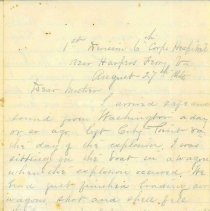 1st Division 6th Corps Hospital
near Harpers Ferry Va
August 27th 1864
Dear Mother
I arrived safe and
sound from Washington a day
or so ago. left City Point on
the day of the explosion, I was
sitting in the boat in a wagon
when the explosion occurred, We
had just finished loading our
wagons, shot and shell fell